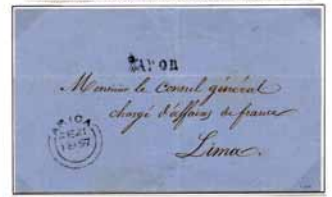 VAPOR
Monsieur le Consul général
chargé d'affaires de france
Lima.
ARICA